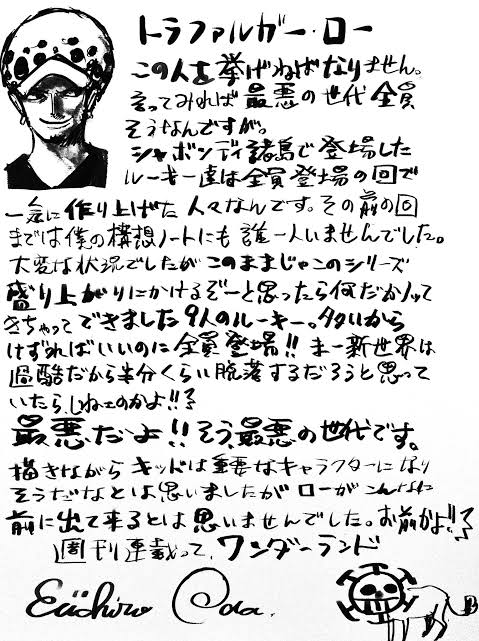 トラファルガー・ロー
この人を挙げねばなりません。
言ってみれば最悪の世代全員
そうなんですが。
シャボンディ諸島で登場した
ルーキー達は全員登場の回で
一気に作り上げた人々なんです。その前の回
までは僕の構想ノートにも誰一人いませんでした。
大変な状況でしたがこのままじゃこのシリーズ
盛り上がりにかけるぞーと思ったら何だかノッて
きちゃってできました9人のルーキー。多いから
けずればいいのに全員登場!!まー新世界は
過酷だから半分くらい脱落するだろうと思って
いたら、しねェのかよ!!
最悪だよ!!そう、最悪の世代です。
描きながらキッドは重要なキャラクターになり
そうだなとは思いましたがローがこんなに
前に出て来るとは思いませんでした。お前かよ!!
週刊連載って、ワンダーランド
Eiichiro Oda.